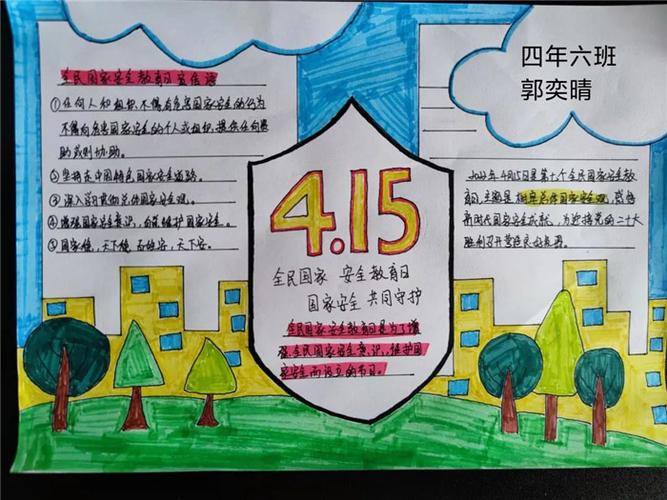 四年六班
郭奕晴
全民国家安全教育日宣传语
①任何人和组织不得有危害国家安全的行为
不得向危害国家安全的个人或组织提供任何资
助或则协助。
②坚持走中国特色国家安全道路。
③深入贯彻总体国家安全观。
④增强国家安全意识,自觉维护国家安全。
⑤国家健,天下健 百姓安,天下安。
4.15
全民国家 安全教育日
国家安全 共同守护
全民国家安全教育日是为了增
强全民国家安全意识,维护国
家安全而设立的节日。
2022年4月15日是第七个全民国家安全教
育日,主题是 树牢总体国家安全观,感悟
新时代国家安全成就,为迎接党的二十大
胜利召开营造良好氛围。